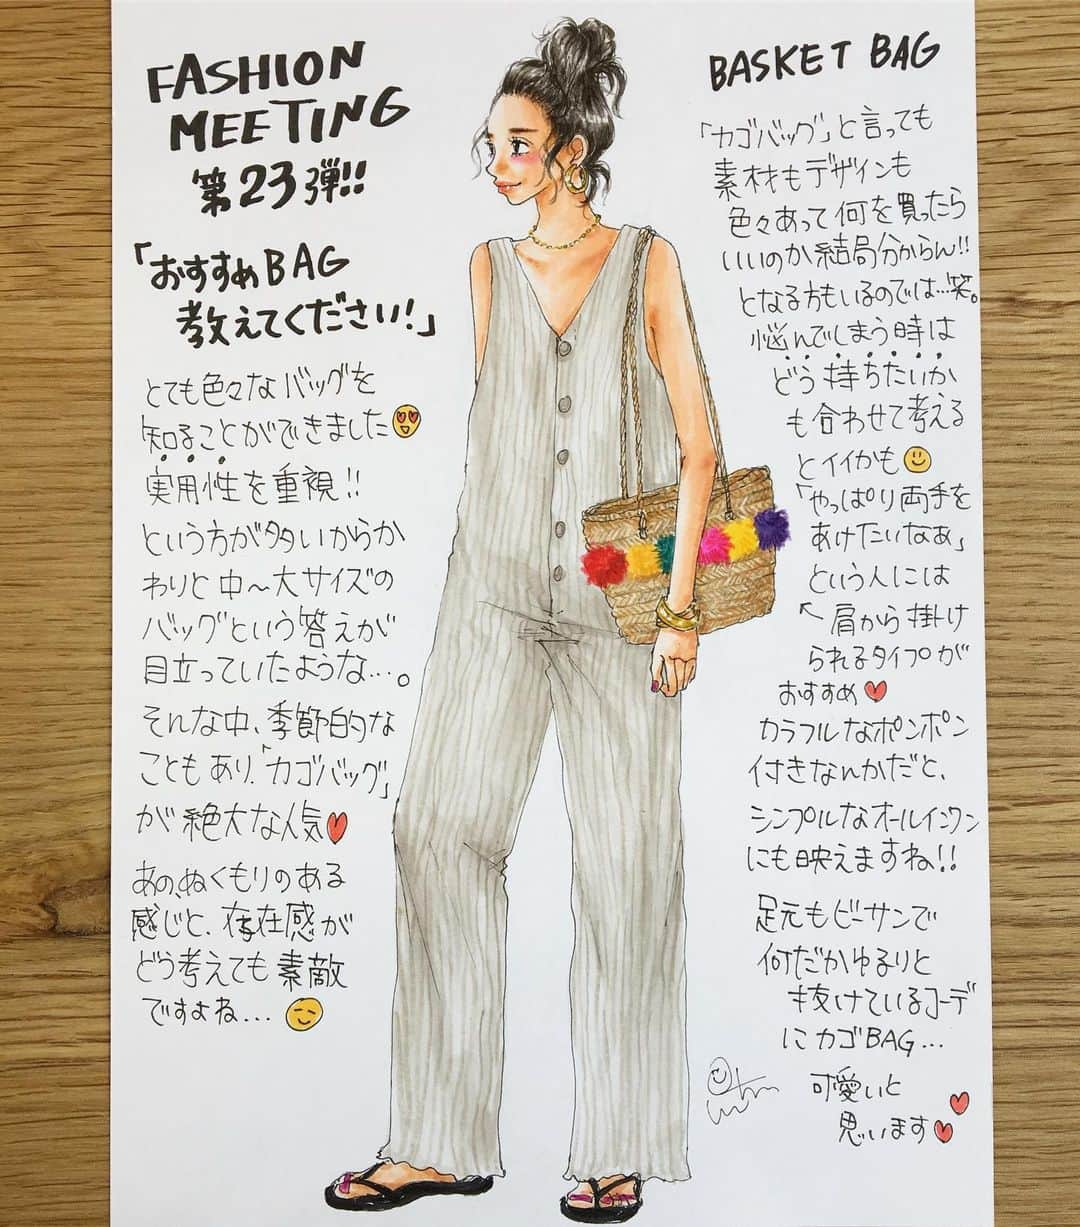 FASHION
MEETING
第23弾!!
「おすすめBAG
教えてください!」
とても色々なバッグを
知ることができました
実用性を重視!!
という方が多いからか
わりと中〜大サイズの
バッグという答えが
目立っていたような…。
そんな中、季節的な
こともあり、「カゴバッグ」
が絶大な人気
あの、ぬくもりのある
感じと、存在感が
どう考えても素敵
ですよね...
BASKET BAG
「カゴバッグ」と言っても
素材もデザインも
色々あって何を買ったら
いいのか結局分からん!!
となる方もいるのでは…笑。
悩んでしまう時は
どう持ちたいか
も合わせて考える
とイイかも
「やっぱり両手を
あけたいなぁ」
という人には
↖肩から掛け
られるタイプが
おすすめ
カラフルなポンポン
付きなんかだと、
シンプルなオールインワン
にも映えますね!!
足元もビーサンで
何だかゆるりと
抜けているコーデ
にカゴBAG...
可愛いと
思います